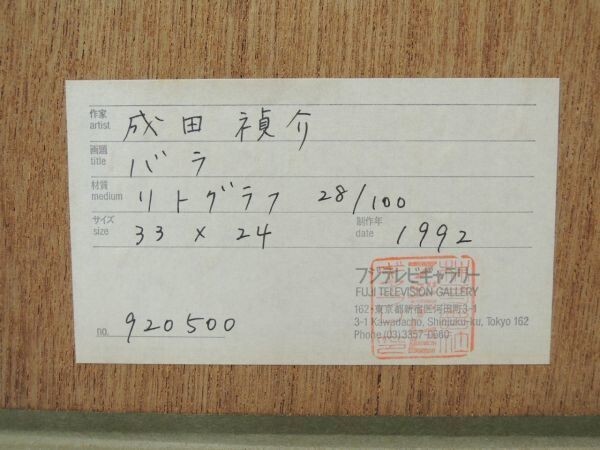 作家
artist 成田禎介
画題
title バラ
材質
medium リトグラフ 28/100
サイズ
size 33 × 24
制作年
date 1992
フジテレビギャラリー
FUJI TELEVISION GALLERY
162・東京都新宿区河田町3-1
3-1 Kawadacho, Shinjuku-ku, Tokyo 162
Phone (03) 3357-0660
no. 920500